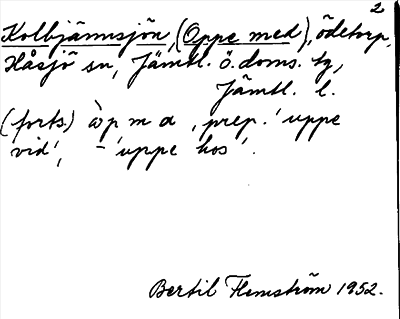 2
Kolbjärnsjön, (Oppe med), ödetorp,
Håsjö sn, Jämtl. ö. doms. tg,
Jämtl. l.
(forts.) àp m a, prep. 'uppe
vid', - 'uppe hos'.
Bertil Flemström 1952.